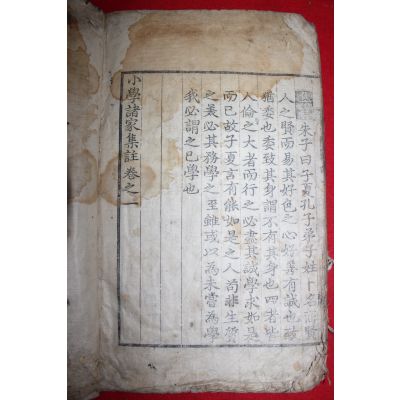 朱子曰子夏孔子弟子姓卜名商賢
人之賢而易其好色之心好善有誠也致
猶委也委致其身謂不有其身也四者皆
人倫之大者而行之必盡其誠學求如是
而已故子夏言有能如是之人苟非生質
之美必其務學之至雖或以為未嘗為學
我必謂之已學也
小學諸家集註卷之一